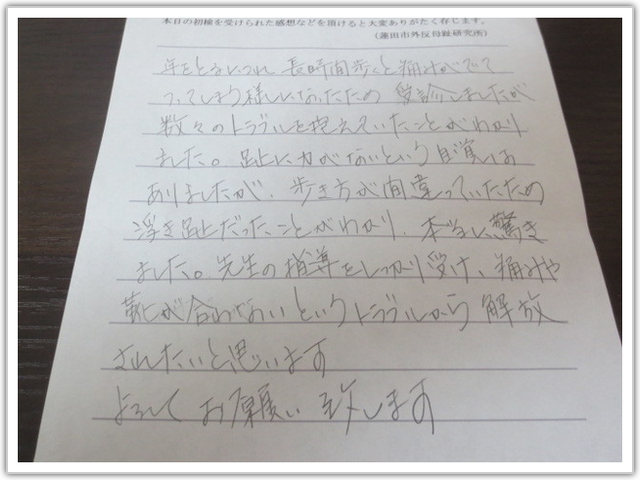 本日の初検を受けられた感想などを頂けると大変ありがたく存じます。
(蓮田市外反母趾研究所)
年をとるにつれ 長時間歩くと痛みがでて
つってしまう様になったため 受診しましたが
数々のトラブルを抱えていたことがわかり
ました。趾に力がないという自覚は
ありましたが、歩き方が間違っていたため
浮き趾だったことがわかり、本当に驚き
ました。先生の指導をしっかり受け、痛みや
靴が合わないというトラブルから 解放
されたいと思います
よろしく お願い 致します